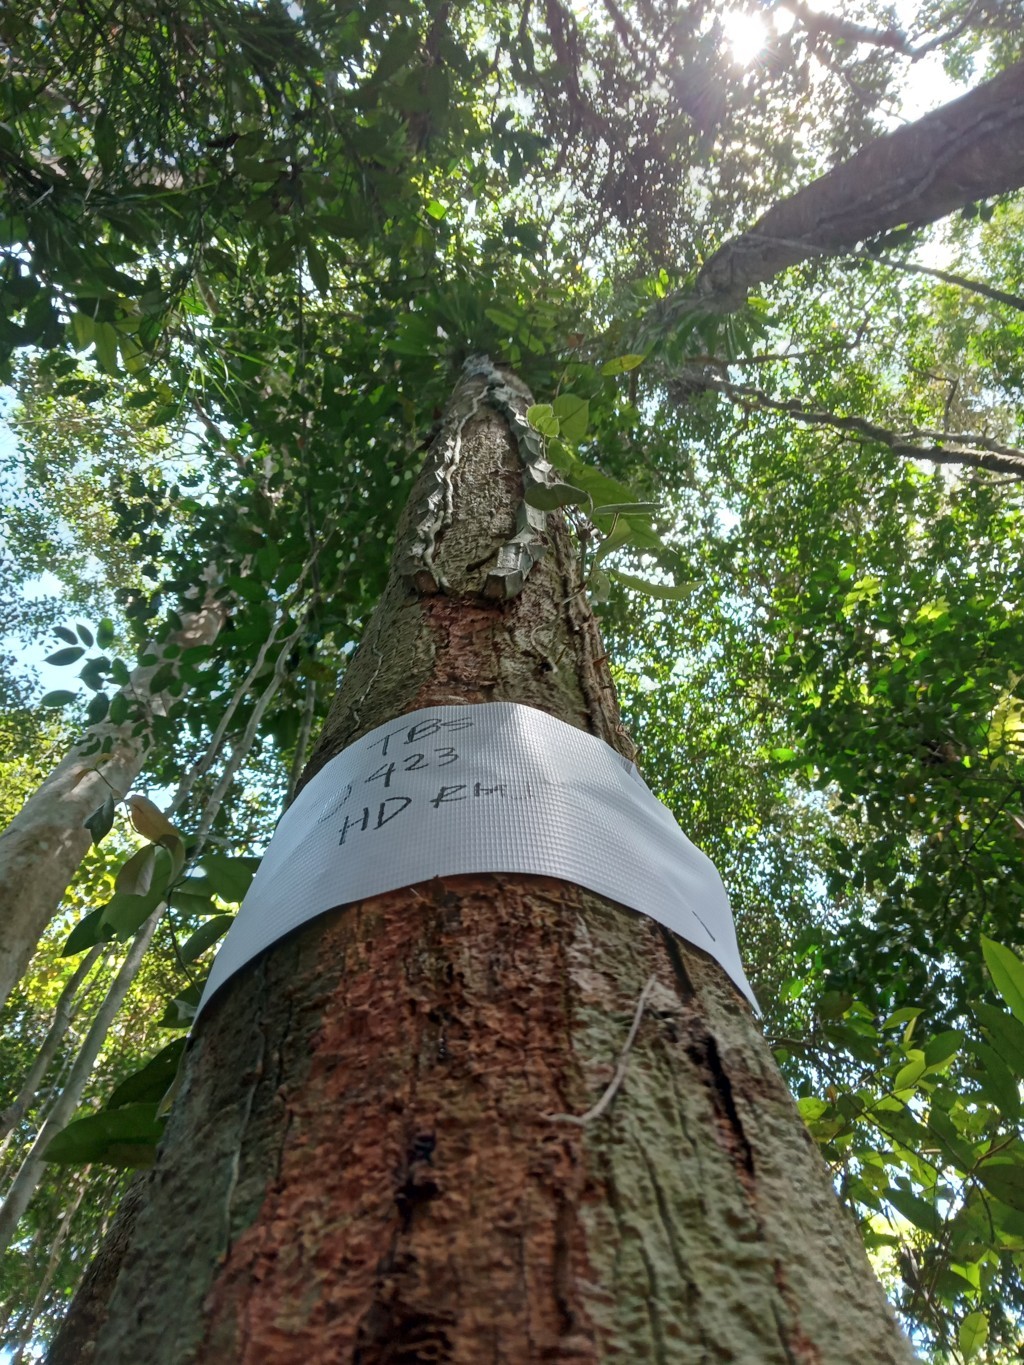 TBS
423
HD RM